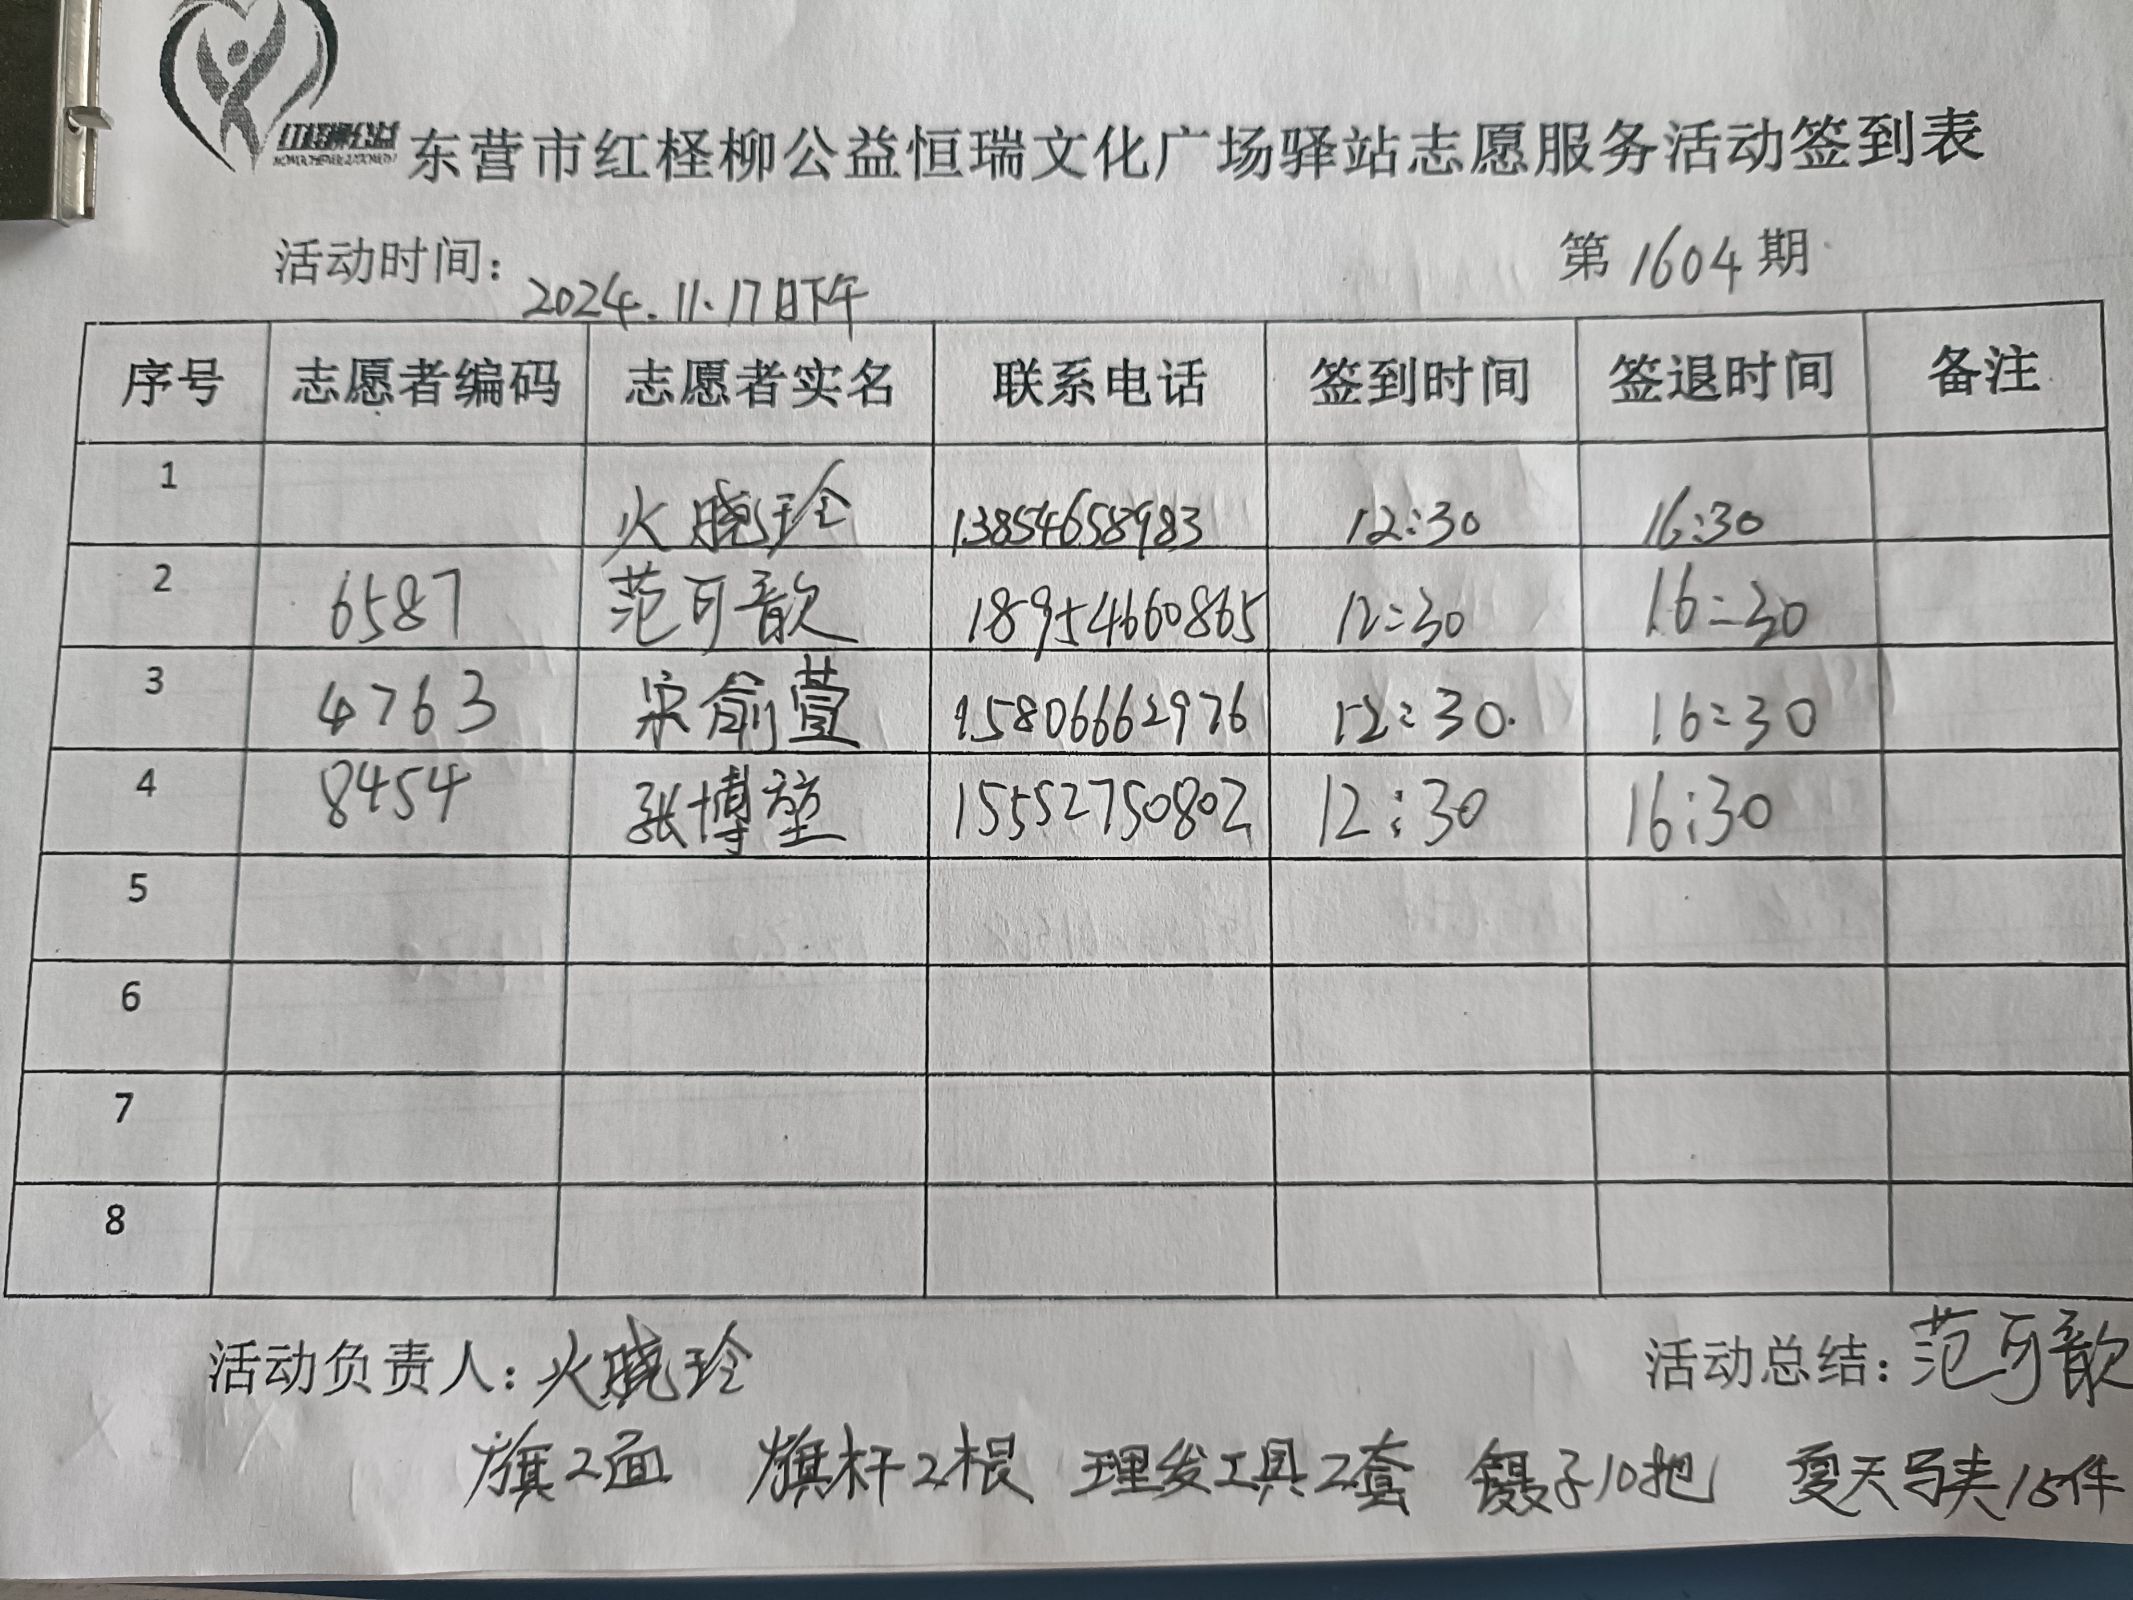 红柽柳公益
东营市红柽柳公益恒瑞文化广场驿站志愿服务活动签到表
活动时间：2024.11.17日下午 第1604期
序号 志愿者编码 志愿者实名 联系电话 签到时间 签退时间 备注
1 火晓玲 13854658983 12:30 16:30
2 6587 范可歆 18954660865 12:30 16:30
3 4763 宋俞萱 15806662976 12:30 16:30
4 8454 张博堃 15552750802 12:30 16:30
5
6
7
8
活动负责人：火晓玲 活动总结：范可歆
旗2面 旗杆2根 理发工具2套 镊子10把 夏天马夹15件